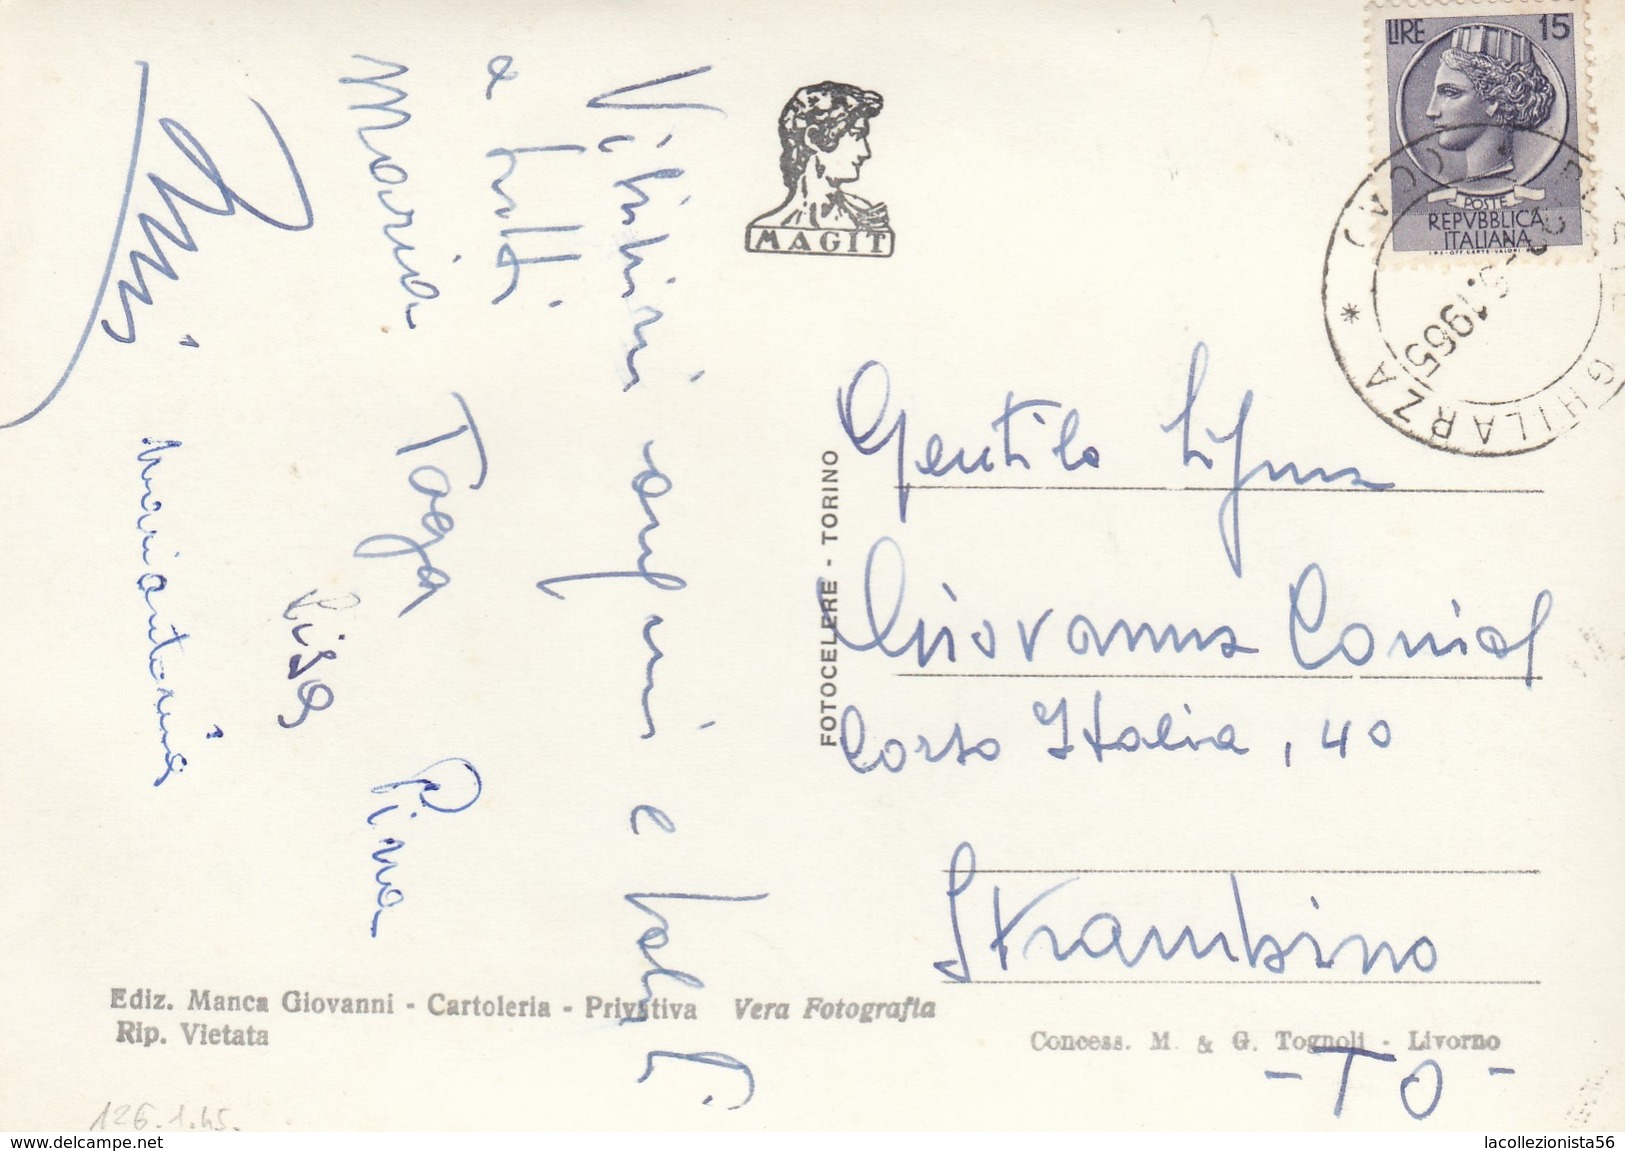 Vivissimi auguri e saluti
a tutti
Maria Toga Pina
Lisa
Mariantonia
MAGIT
LIRE 15
POSTE
REPVBBLICA
ITALIANA
GHILARZA *
1965
FOTOCELERE - TORINO
Gentile Sig.na
Giovanna
Corso Italia, 40
Strambino
- TO -
Ediz. Manca Giovanni - Cartoleria - Privativa Vera Fotografia
Rip. Vietata
Concess. M. & G. Tognoli - Livorno
126.1.45.
delcampe.net
lacollezionista56